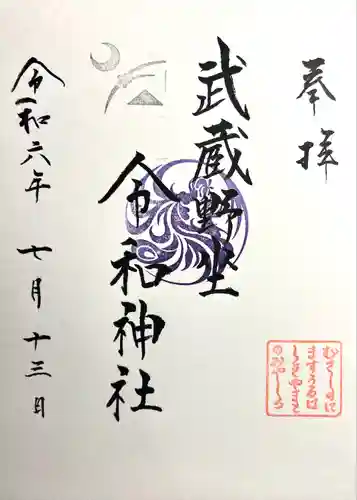 奉拝
武蔵野坐
令和神社
令和六年 七月十三日
むさしのに
ますうるは
しきやまと
のみやしろ